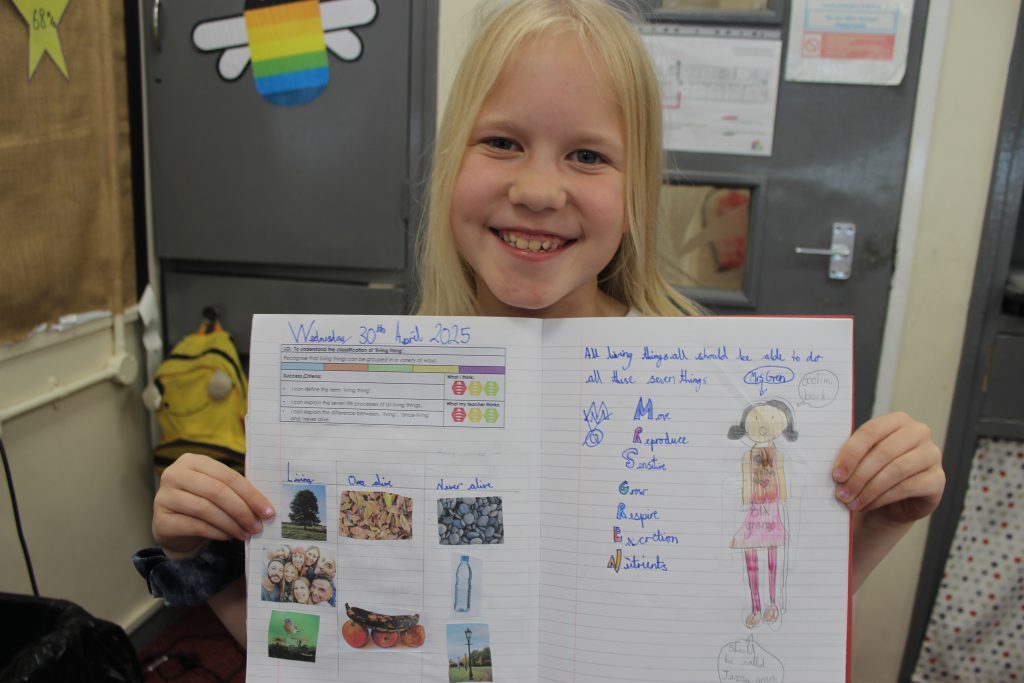 68%
Wednesday 30th April 2025
LO: To understand the classification of 'living thing'.
Recognise that living things can be grouped in a variety of ways
Success Criteria:
What I think:
I can define the term 'living thing'
I can explain the seven life processes of all living things.
What my teacher thinks
I can explain the difference between, 'living' 'once-living' and 'never alive'.
Living
Once alive
Never alive
All living things all should be able to do
all these seven things
Mrs Gren
Move
Reproduce
Sensitive
Grow
Respire
Excretion
Nutrients
should
be called